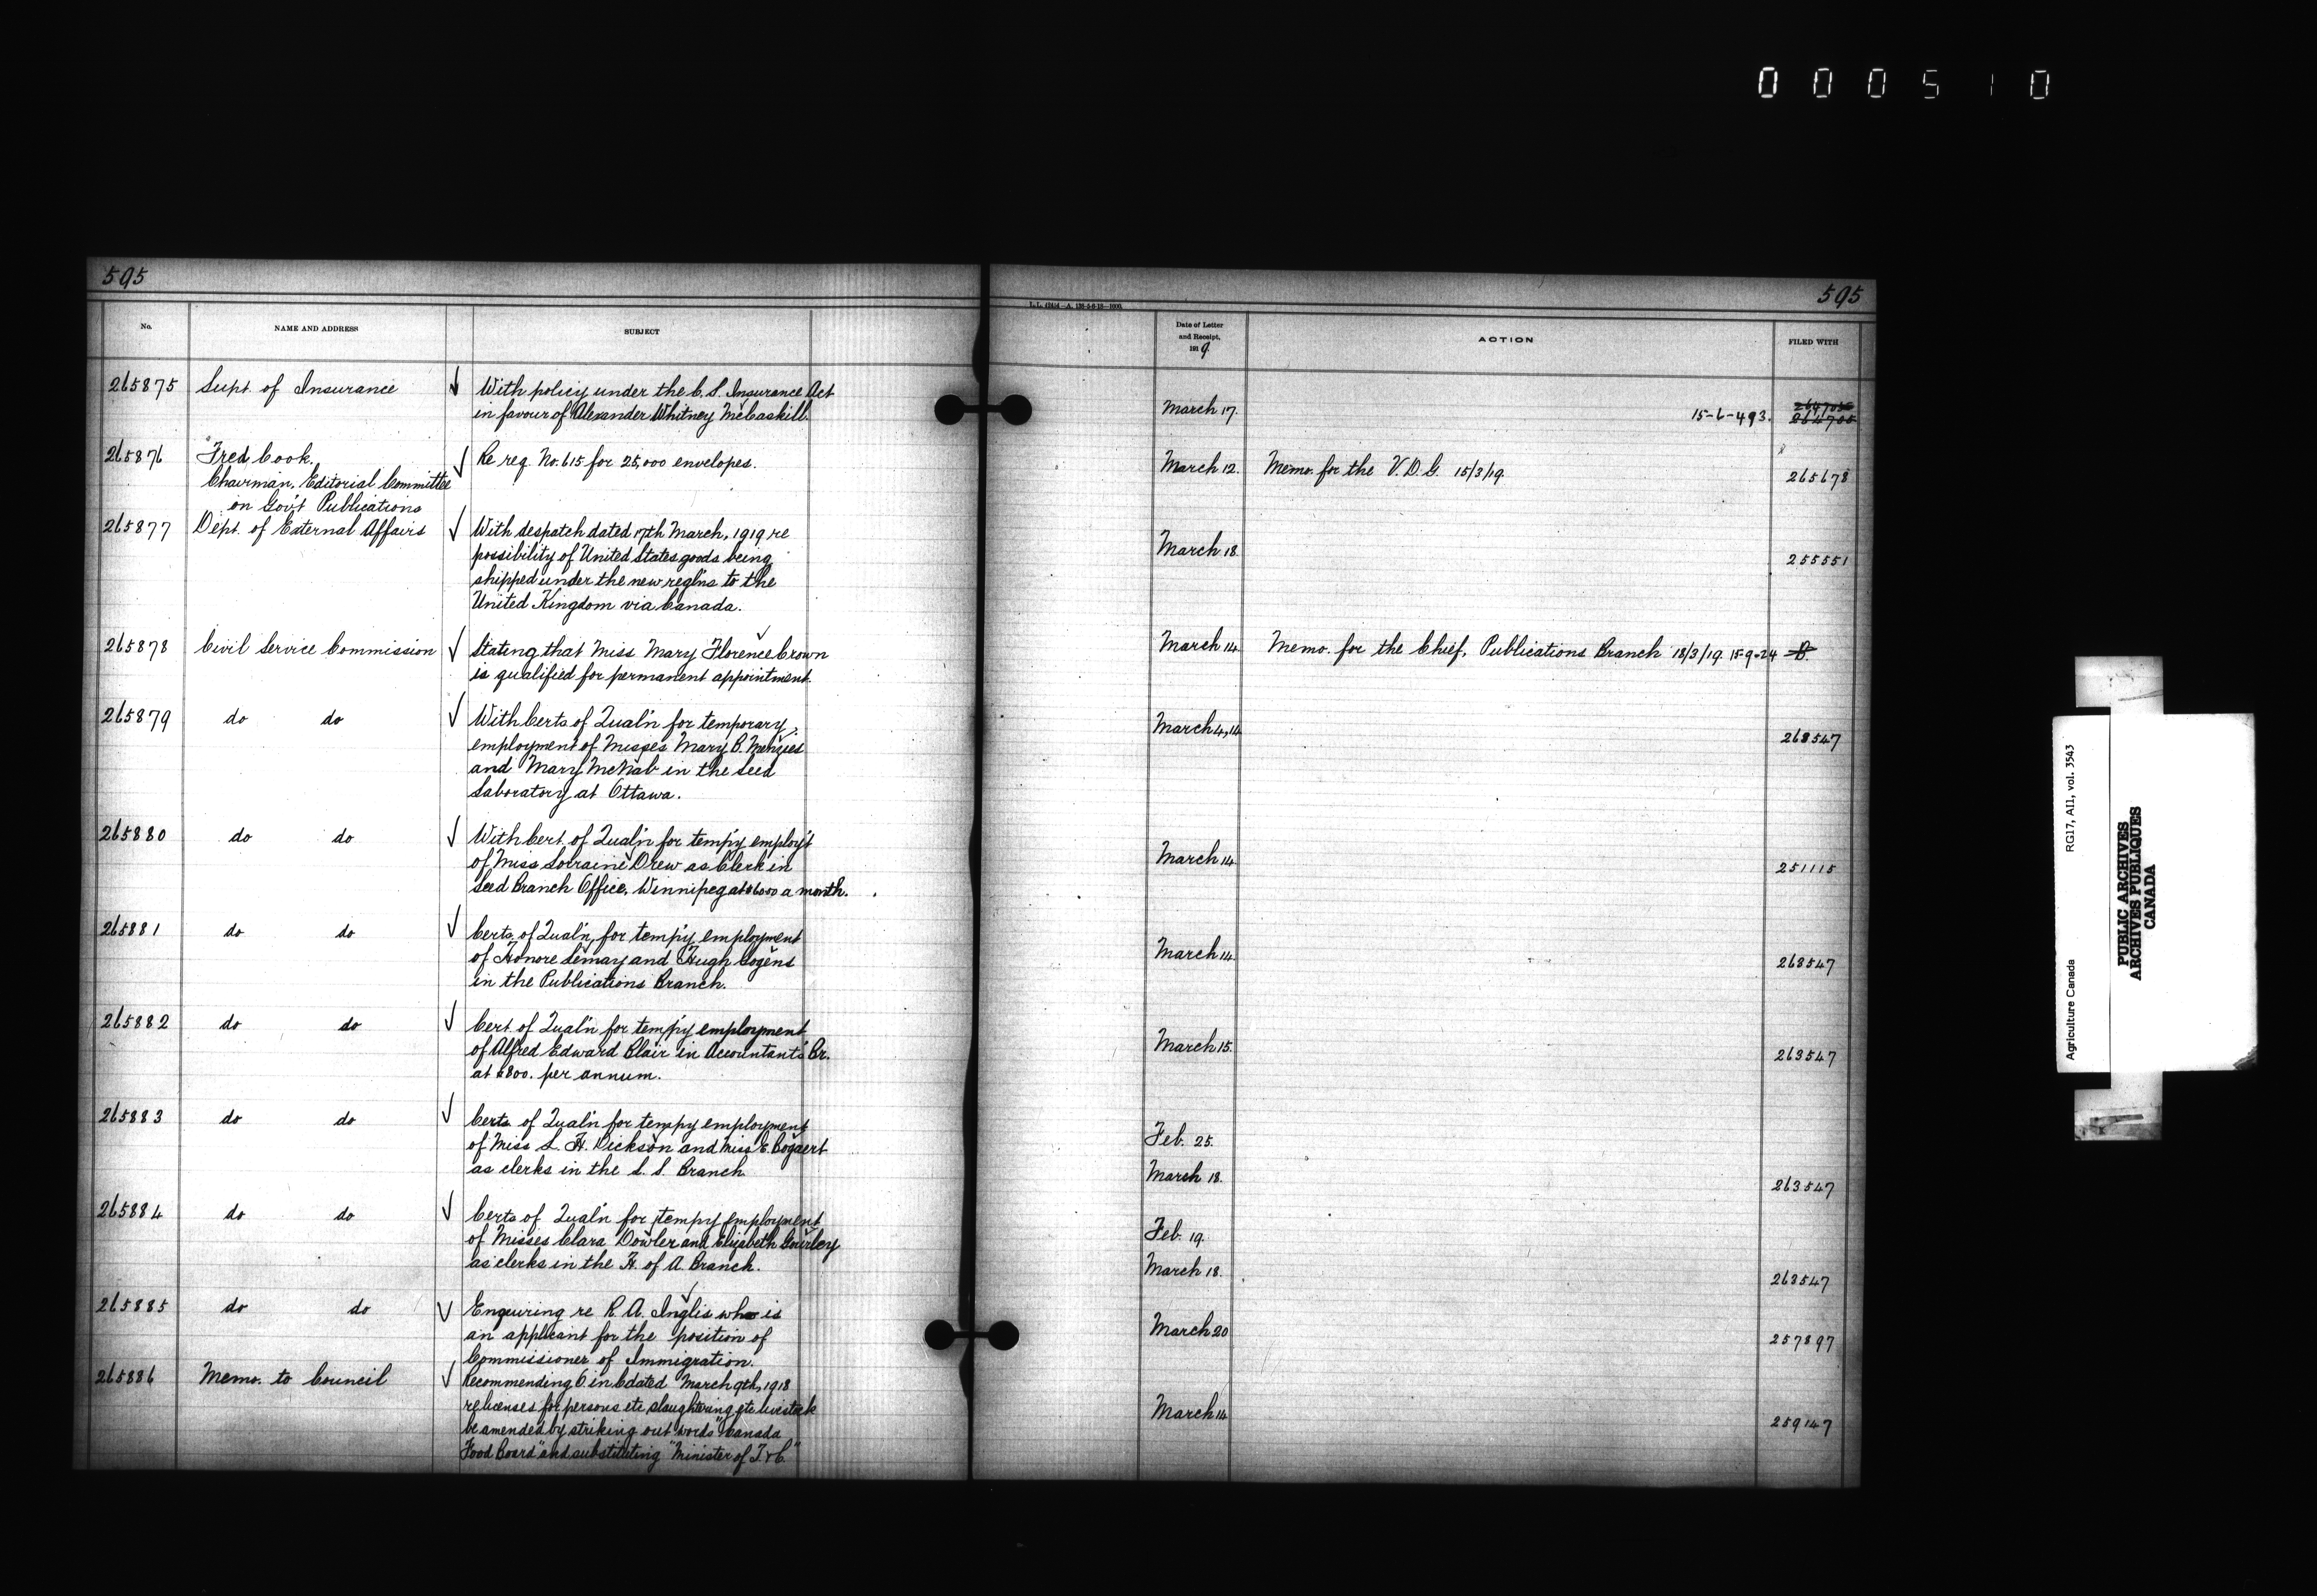 000510
595
595
L.L. 42454—A. 138-5-6-18—1000.
No.
NAME AND ADDRESS
SUBJECT
Date of Letter
and Receipt,
1919.
ACTION
FILED WITH
265875
Supt of Insurance
With policy under the C. S. Insurance Act
in favour of Alexander Whitney McCaskill.
March 17.
15-6-493.
264705
265876
Fred Cook.
Chairman, Editorial Committee
on Gov't Publications
Re req. No. 615 for 25,000 envelopes.
March 12.
Memo. for the V. D. G. 15/3/19.
265678
265877
Dept. of External Affairs
With despatch dated 17th March, 1919 re
possibility of United States goods being
shipped under the new reg'ns to the
United Kingdom via Canada.
March 18.
255551
265878
Civil Service Commission
Stating that Miss Mary Florence Crown
is qualified for permanent appointment.
March 14.
Memo. for the Chief, Publications Branch 18/3/19. 15-9-24
265879
do do
With Certs of Qual'n for temporary
employment of Misses Mary B. Menzies
and Mary McNab in the Seed
Laboratory at Ottawa.
March 4, 14.
263547
265880
do do
With Cert. of Qual'n for temp'y employ't
of Miss Lorraine Drew as Clerk in
Seed Branch Office, Winnipeg at $60.00 a month.
March 14.
251115
265881
do do
Certs. of Qual'n for temp'y employment
of Honore Lemay and Hugh Gogens
in the Publications Branch.
March 14.
263547
265882
do do
Cert. of Qual'n for temp'y employment
of Alfred Edward Blair in Accountant's Br.
at $800. per annum.
March 15.
263547
265883
do do
Certs. of Qual'n for tempy employment
of Miss L. H. Dickson and Miss E. Bogaert
as clerks in the L. S. Branch.
Feb. 25.
March 18.
263547
265884
do do
Certs of Qual'n for tempy employment
of Misses Clara Dowler and Elizabeth Gourley
as clerks in the H. of A. Branch.
Feb. 19.
March 18.
263547
265885
do do
Enquiring re R. A. Inglis who is
an applicant for the position of
Commissioner of Immigration.
March 20
257897
265886
Memo. to Council
Recommending O in C dated March 9th, 1918
re licenses for persons etc slaughtering etc livestock
be amended by striking out words "Canada
Food Board" and substituting "Minister of T & C."
March 14.
259147
Agriculture Canada
RG17, AII, vol. 3543
PUBLIC ARCHIVES
ARCHIVES PUBLIQUES
CANADA